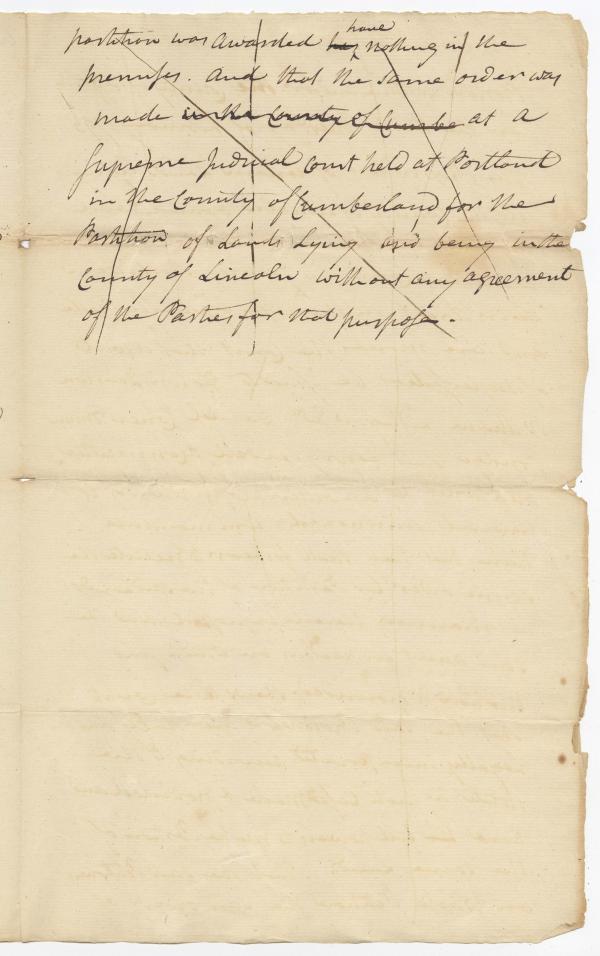 partition was awarded has have nothing in the
premises. And that the same order was
made in the County of Cumbe at a
Supreme Judicial court held at Portland
in the County of Cumberland for the
Partition of Lands Lying and being in the
County of Lincoln without any agreement
of the Parties for that purpose.